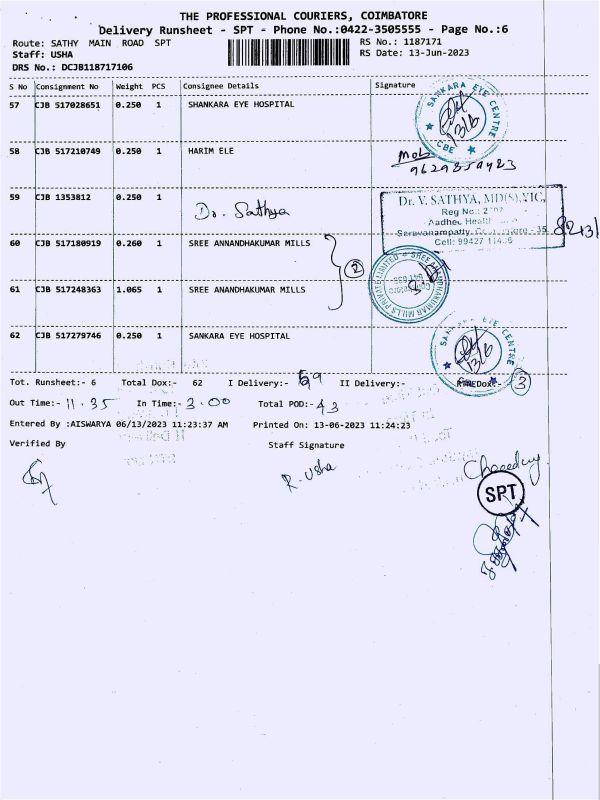 THE PROFESSIONAL COURIERS, COIMBATORE
Delivery Runsheet - SPT - Phone No.:0422-3505555 - Page No.:6
Route: SATHY MAIN ROAD SPT
RS No.: 1187171
Staff: USHA
RS Date: 13-Jun-2023
DRS No.: DCJB118717106
S No Consignment No Weight PCS Consignee Details Signature
57 CJB 517028651 0.250 1 SHANKARA EYE HOSPITAL
SANKARA EYE CENTRE
CBE
13/6
58 CJB 517210749 0.250 1 HARIM ELE
Mob
59 CJB 1353812 0.250 1 Dr. Sathya
Dr. V. SATHYA, MD(S),VIC,
Reg No.:
Aadhee Health
Saravanampatty, - 35
Cell: 99427
60 CJB 517180919 0.260 1 SREE ANNANDHAKUMAR MILLS
2
61 CJB 517248363 1.065 1 SREE ANANDHAKUMAR MILLS
SREE ANANDHAKUMAR MILLS PRIVATE LIMITED
62 CJB 517279746 0.250 1 SANKARA EYE HOSPITAL
SANKARA EYE CENTRE
13/6
Tot. Runsheet:- 6 Total Dox:- 62 I Delivery:- 59 II Delivery:- Dox:- 3
Out Time:- 11.35 In Time:- 3.00 Total POD:- 43
Entered By :AISWARYA 06/13/2023 11:23:37 AM Printed On: 13-06-2023 11:24:23
Verified By Staff Signature
R. Usha
SPT